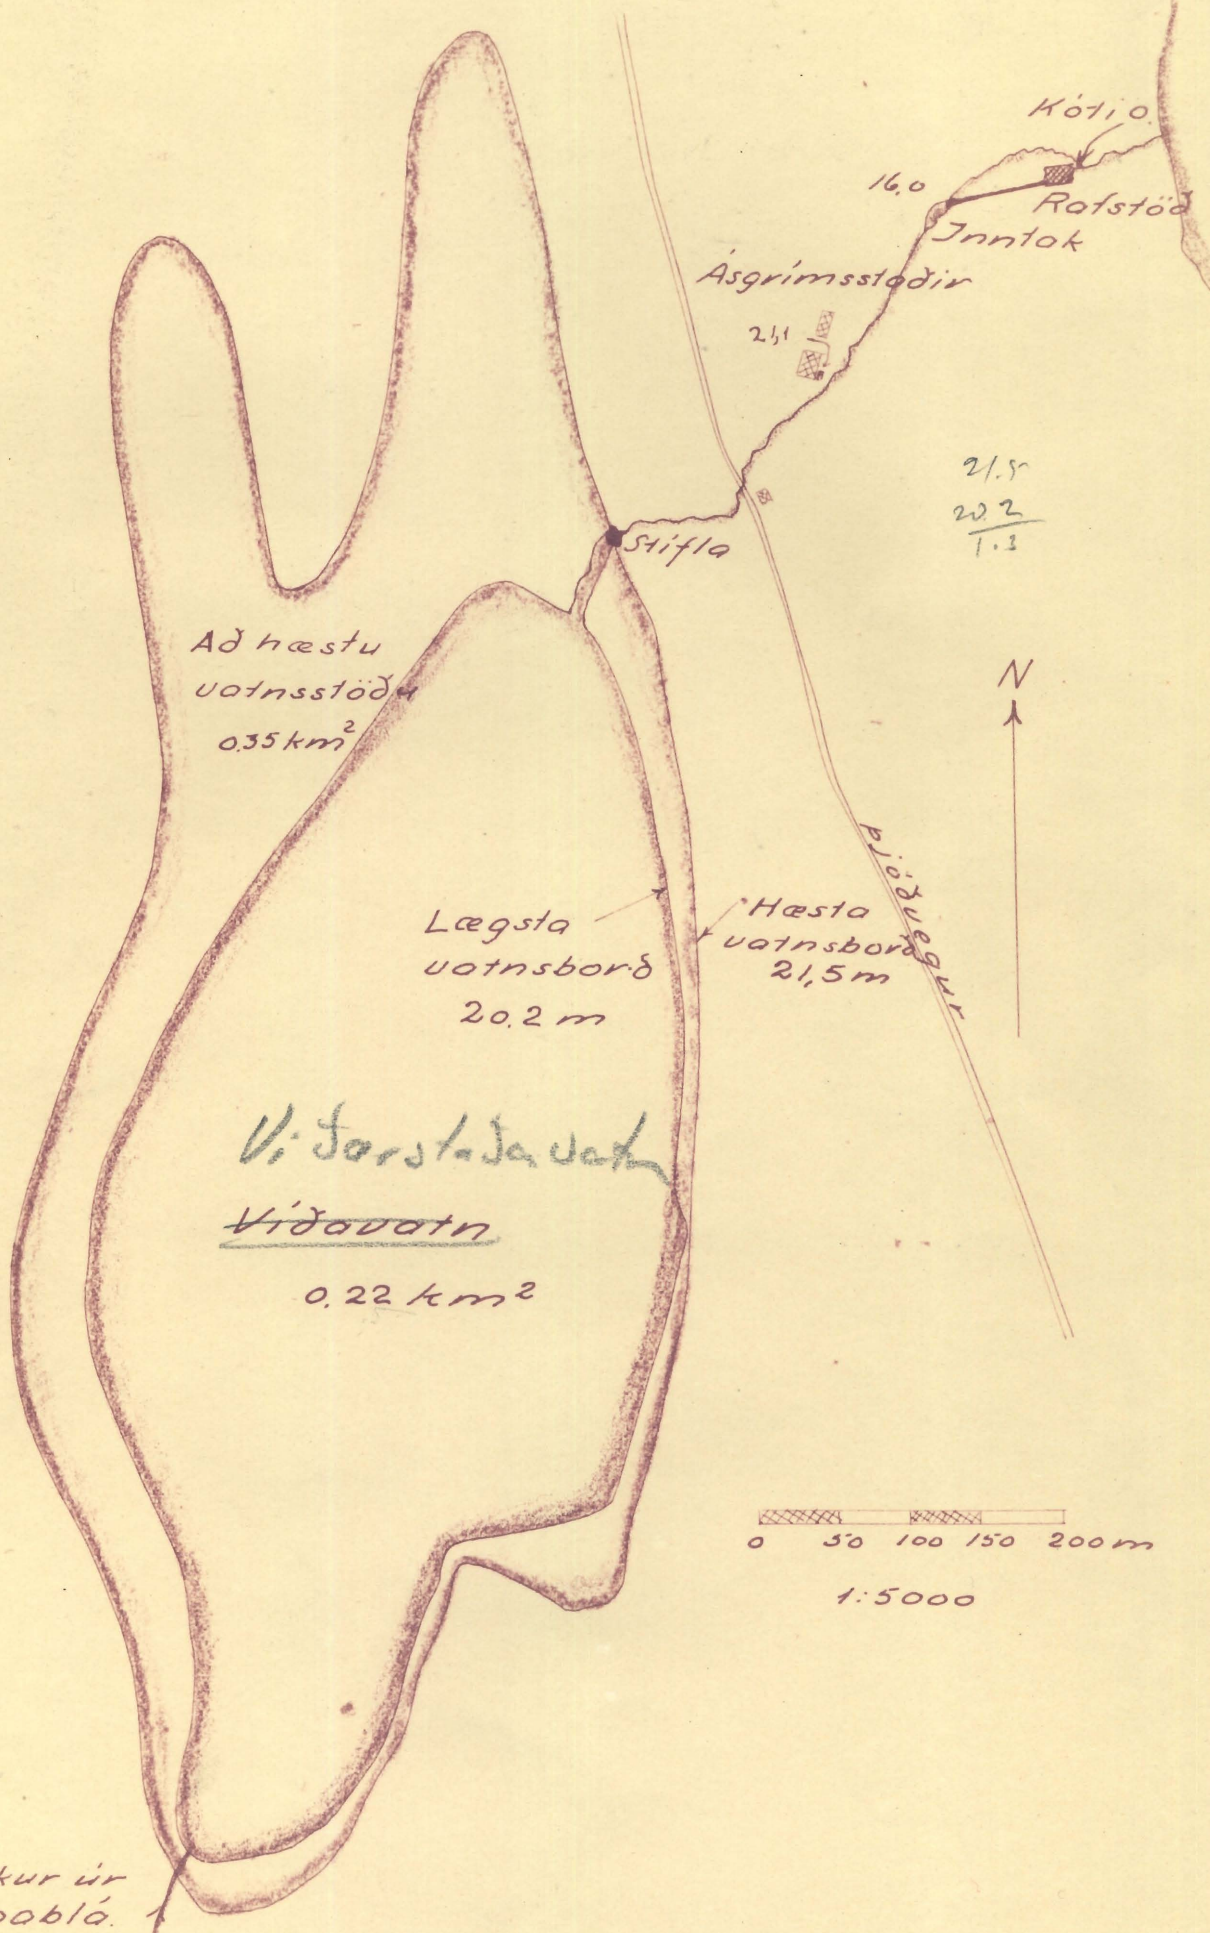 Kóti 0.
16,0
Rafstöð
Inntak
Ásgrímsstaðir
21,1
21.5
20.2
1.3
Stífla
Að hæstu
vatnsstöðu
0.35 km²
N
Þjóðvegur
Lægsta
vatnsborð
20.2 m
Hæsta
vatnsborð
21,5 m
Viðarstaðavatn
Víðavatn
0.22 km²
0 50 100 150 200 m
1:5000
kur úr
abla.